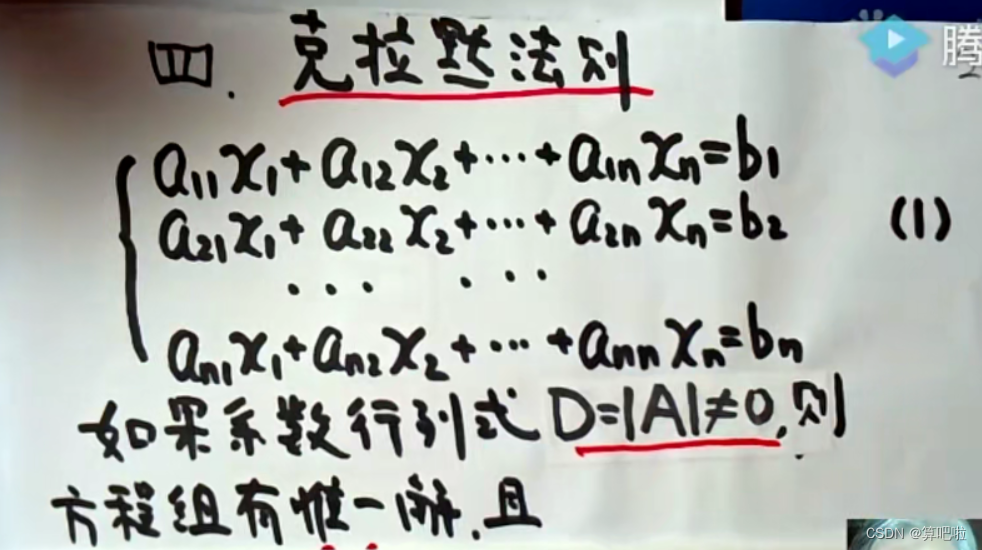 四. 克拉默法则
腾
a₁₁x₁+a₁₂x₂+···+a₁ₙxₙ=b₁
a₂₁x₁+a₂₂x₂+···+a₂ₙxₙ=b₂ (1)
··· ···
aₙ₁x₁+aₙ₂x₂+···+aₙₙxₙ=bₙ
如果系数行列式 D=|A|≠0,则
方程组有惟一解.且
CSDN @算吧啦